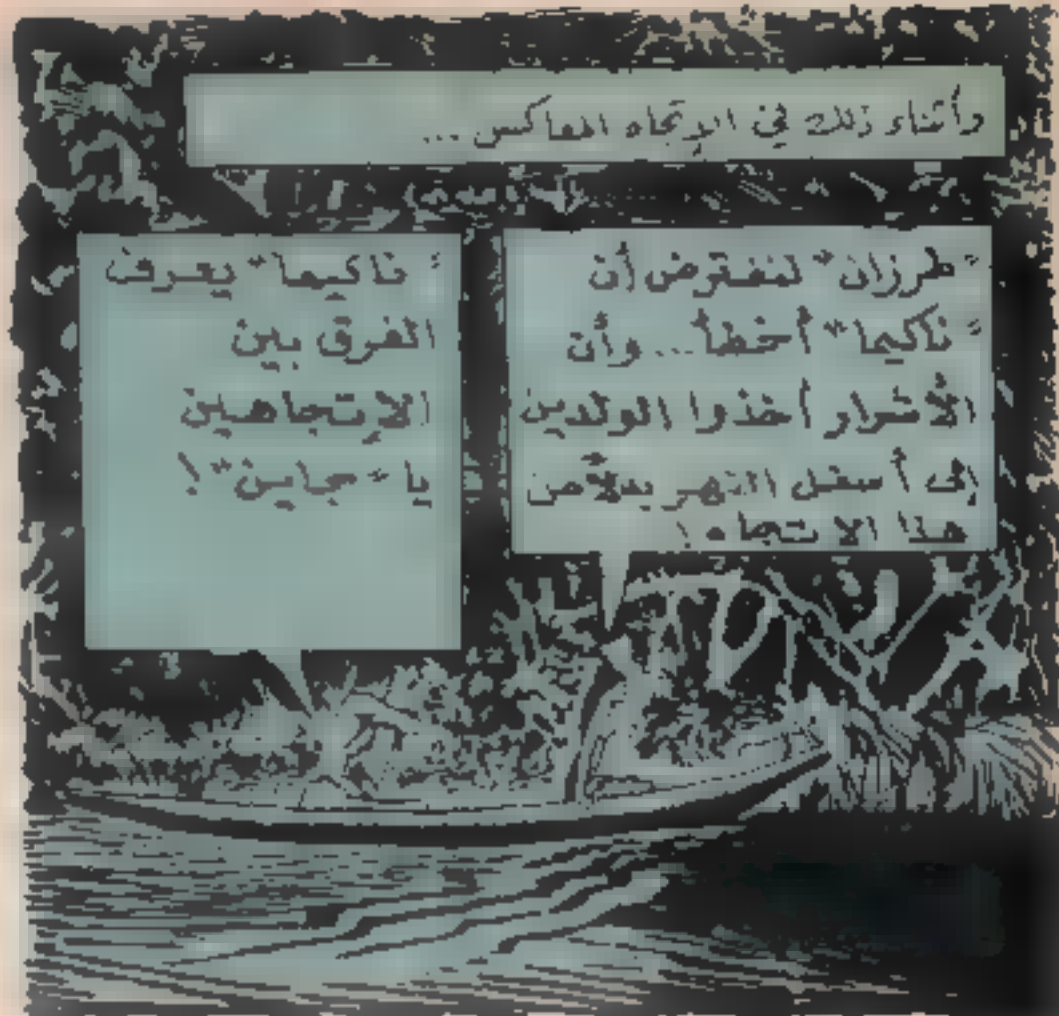 وأثناء ذلك في الإتجاه المعاكس ...
"طرزان" لنفترض أن
"ناكيما" أخطأ... وأن
الأشرار أخذوا الولدين
إلى أسفل النهر بدلاً من
هذا الاتجاه!
"ناكيما" يعرف
الفرق بين
الإتجاهين
يا "جاين"!